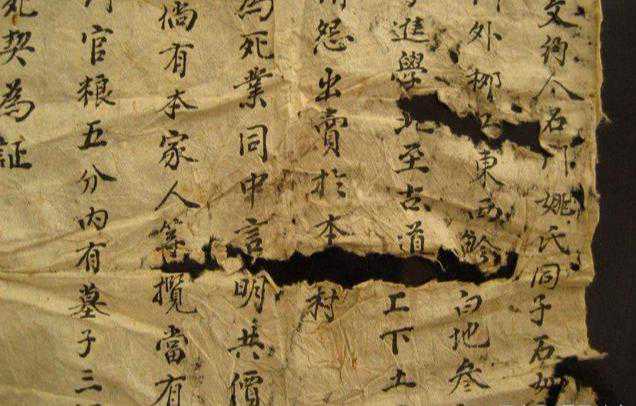 文約人石门姚氏同子石
外柳工東西畛白地叁
進學北至古道工下土
情怨出賣於本村
為死業同中言明共價
倘有本家人等攬當有
官粮五分内有墓子三
死契為証